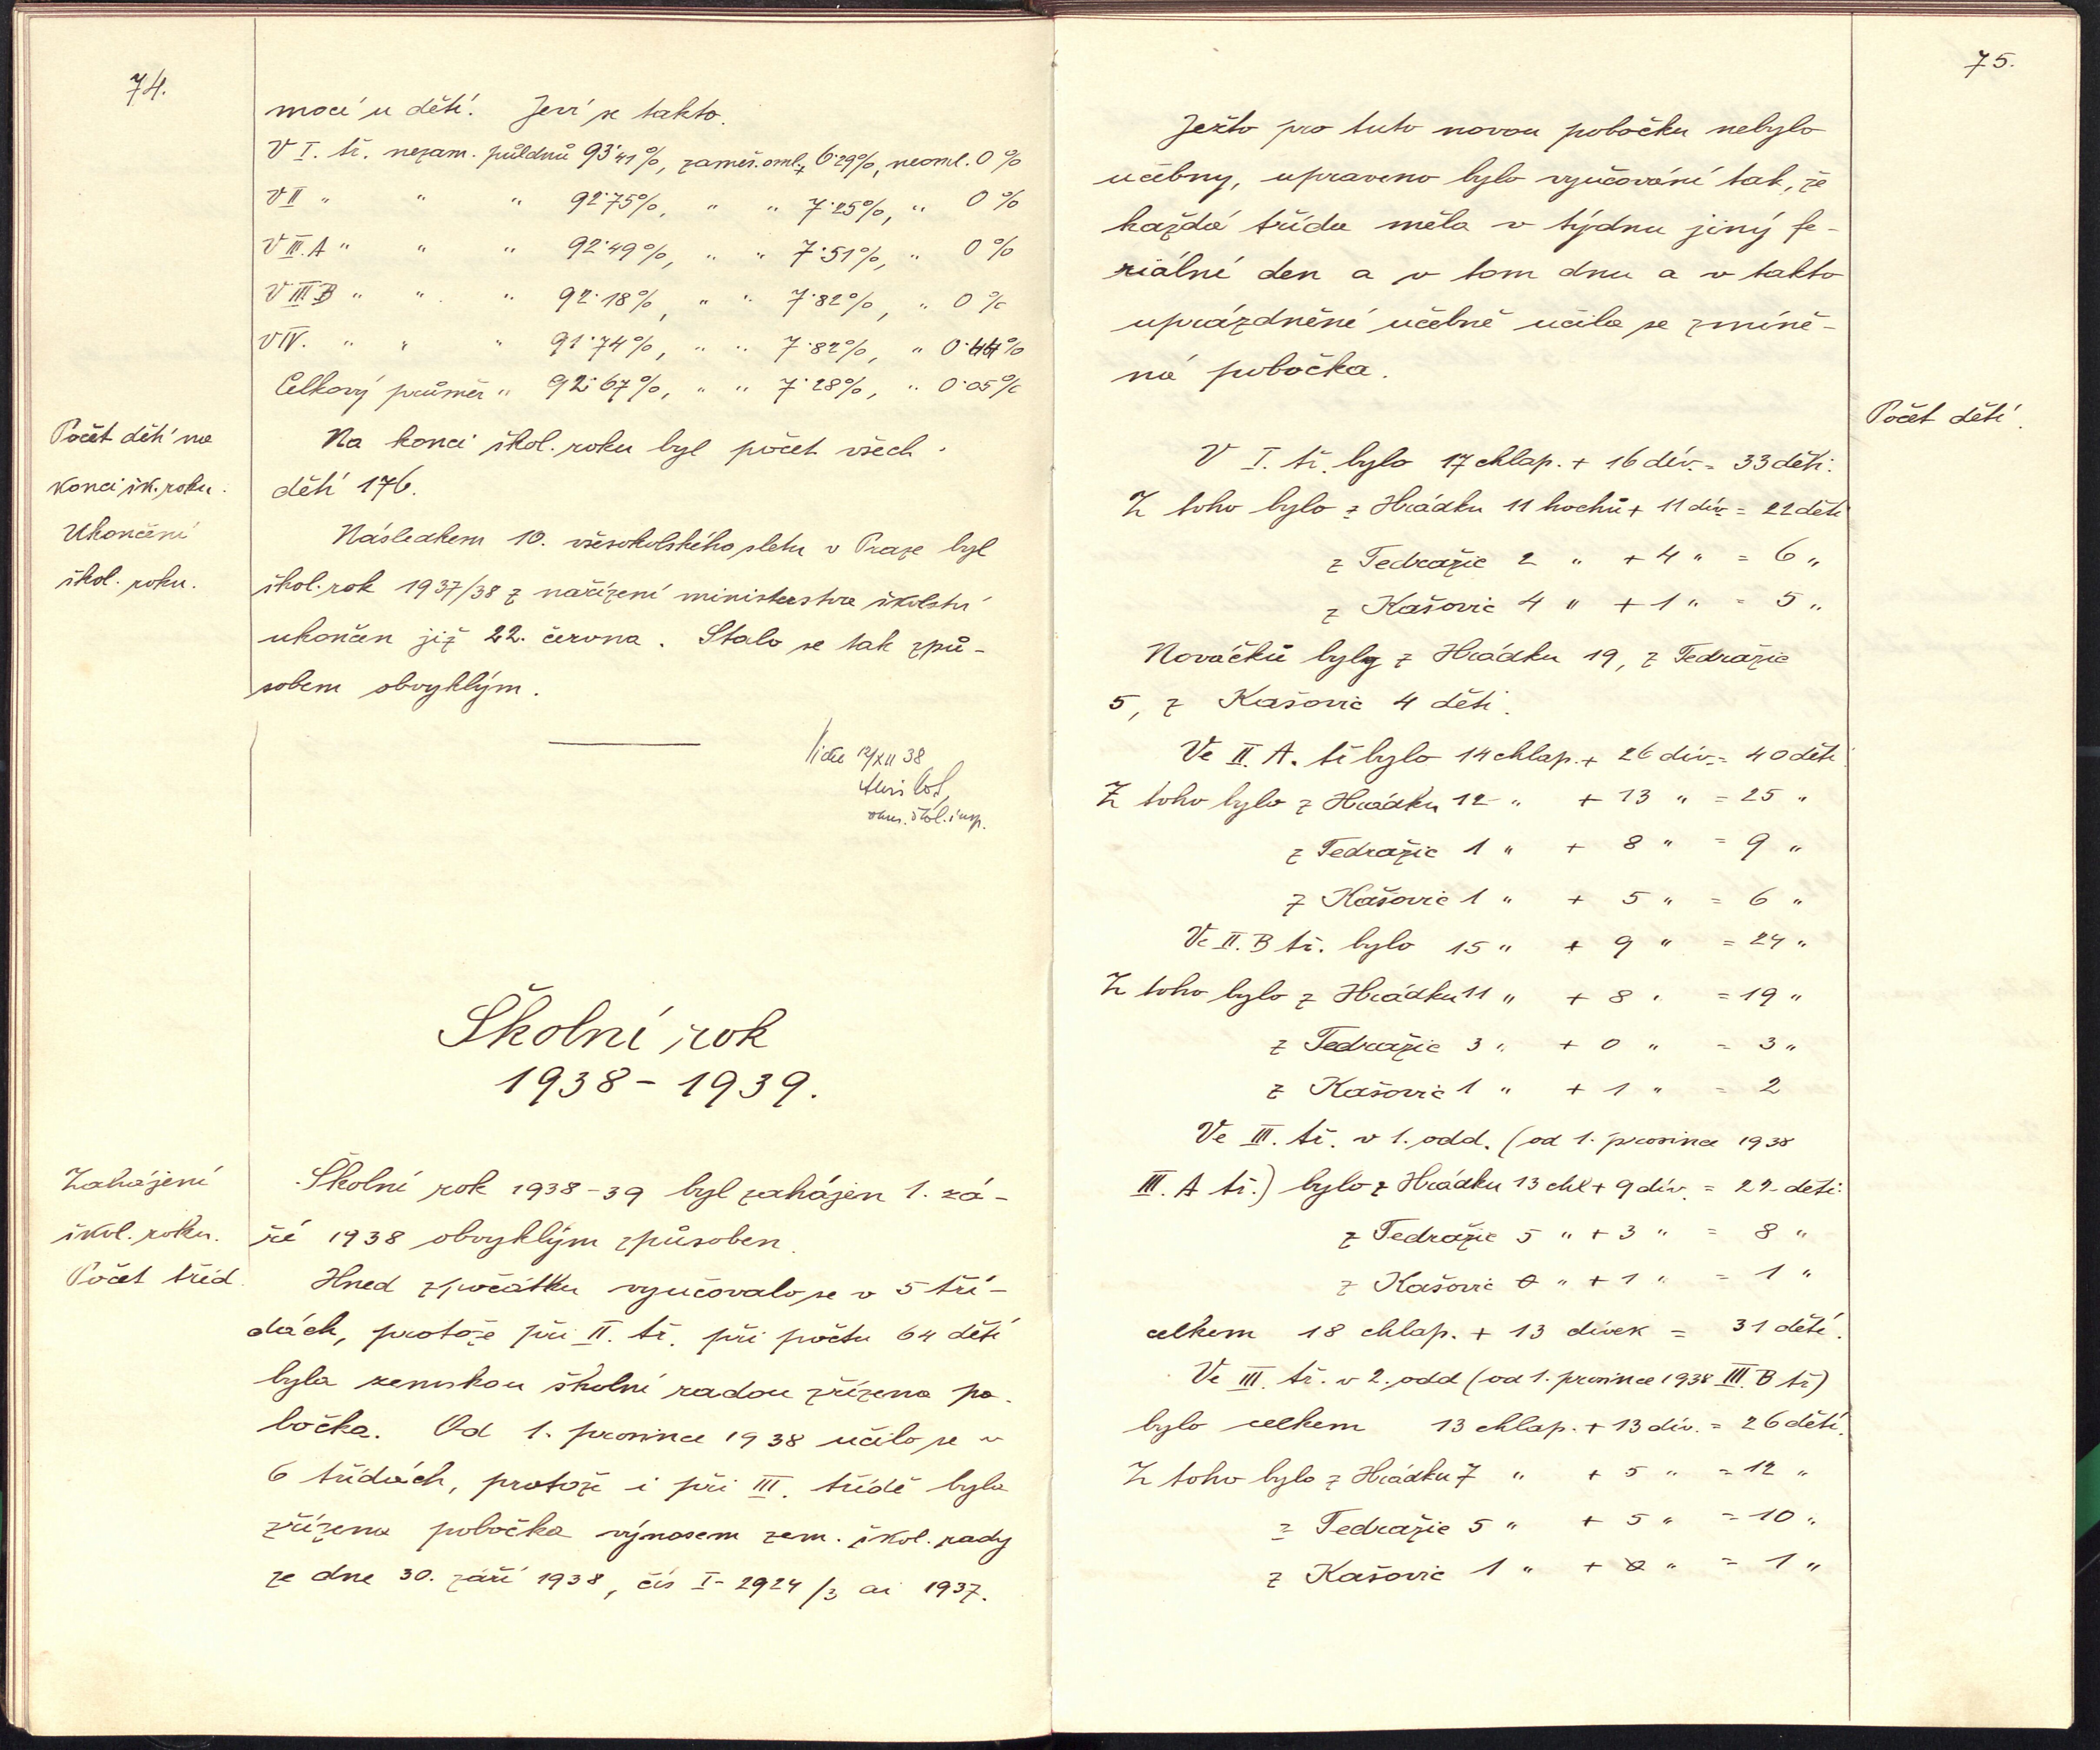 74.
mocí u dětí. Jeví se takto.
V I. tř. nezam. půldnů 93·41%, zameš. oml. 6·29%, neoml. 0%
V II " " " 92·75%, " " 7·25%, " 0%
V III. A " " " 92·49%, " " 7·51%, " 0%
V III B " " " 92·18%, " " 7·82%, " 0%
V IV. " " " 91·74%, " " 7·82%, " 0·44%
Celkový průměr " 92·67%, " " 7·28%, " 0·05%
Počet dětí na
konci šk. roku.
Na konci škol. roku byl počet všech
dětí 176.
Ukončení
škol. roku.
Následkem 10. všesokolského sletu v Praze byl
škol. rok 1937/38 z nařízení ministerstva školství
ukončen již 22. června. Stalo se tak způ-
sobem obvyklým.
Viděl 12/XII 38
okr. škol. insp.
Školní rok
1938 - 1939.
Zahájení
škol. roku.
Školní rok 1938-39 byl zahájen 1. zá-
ří 1938 obvyklým způsoben.
Počet tříd.
Hned zpočátku vyučovalo se v 5 tří-
dách, protože při II. tř. při počtu 64 dětí
byla zemskou školní radou zřízena po-
bočka. Od 1. prosince 1938 učilo se v
6 třídách, protože i při III. třídě byla
zřízena pobočka výnosem zem. škol. rady
ze dne 30. září 1938, čís I-2924/3 ai 1937.
75.
Ježto pro tuto novou pobočku nebylo
učebny, upraveno bylo vyučování tak, že
každá třída měla v týdnu jiný fe-
riální den a v tom dnu a v takto
uprázdněné učebně učila se zmíně-
ná pobočka.
Počet dětí.
V I. tř. bylo 17 chlap. + 16 dív. = 33 děti.
Z toho bylo z Hrádku 11 hochů + 11 dív = 22 dětí
z Tedražic 2 " + 4 " = 6 "
z Kašovic 4 " + 1 " = 5 "
Nováčků byly z Hrádku 19, z Tedražic
5, z Kašovic 4 děti.
Ve II. A. tř bylo 14 chlap. + 26 dív. = 40 dětí
Z toho bylo z Hrádku 12 " + 13 " = 25 "
z Tedražic 1 " + 8 " = 9 "
z Kašovic 1 " + 5 " = 6 "
Ve II. B tř. bylo 15 " + 9 " = 24 "
Z toho bylo z Hrádku 11 " + 8 " = 19 "
z Tedražic 3 " + 0 " = 3 "
z Kašovic 1 " + 1 " = 2
Ve III. tř. v 1. odd. (od 1. prosince 1938
III. A tř.) bylo z Hrádku 13 chl + 9 dív. = 22 dětí.
z Tedražic 5 " + 3 " = 8 "
z Kašovic 0 " + 1 " = 1 "
celkem 18 chlap. + 13 dívek = 31 dětí.
Ve III. tř. v 2. odd (od 1. prosince 1938 III. B tř)
bylo celkem 13 chlap. + 13 dív. = 26 dětí.
Z toho bylo z Hrádku 7 " + 5 " = 12 "
z Tedražic 5 " + 5 " = 10 "
z Kašovic 1 " + 0 " = 1 "